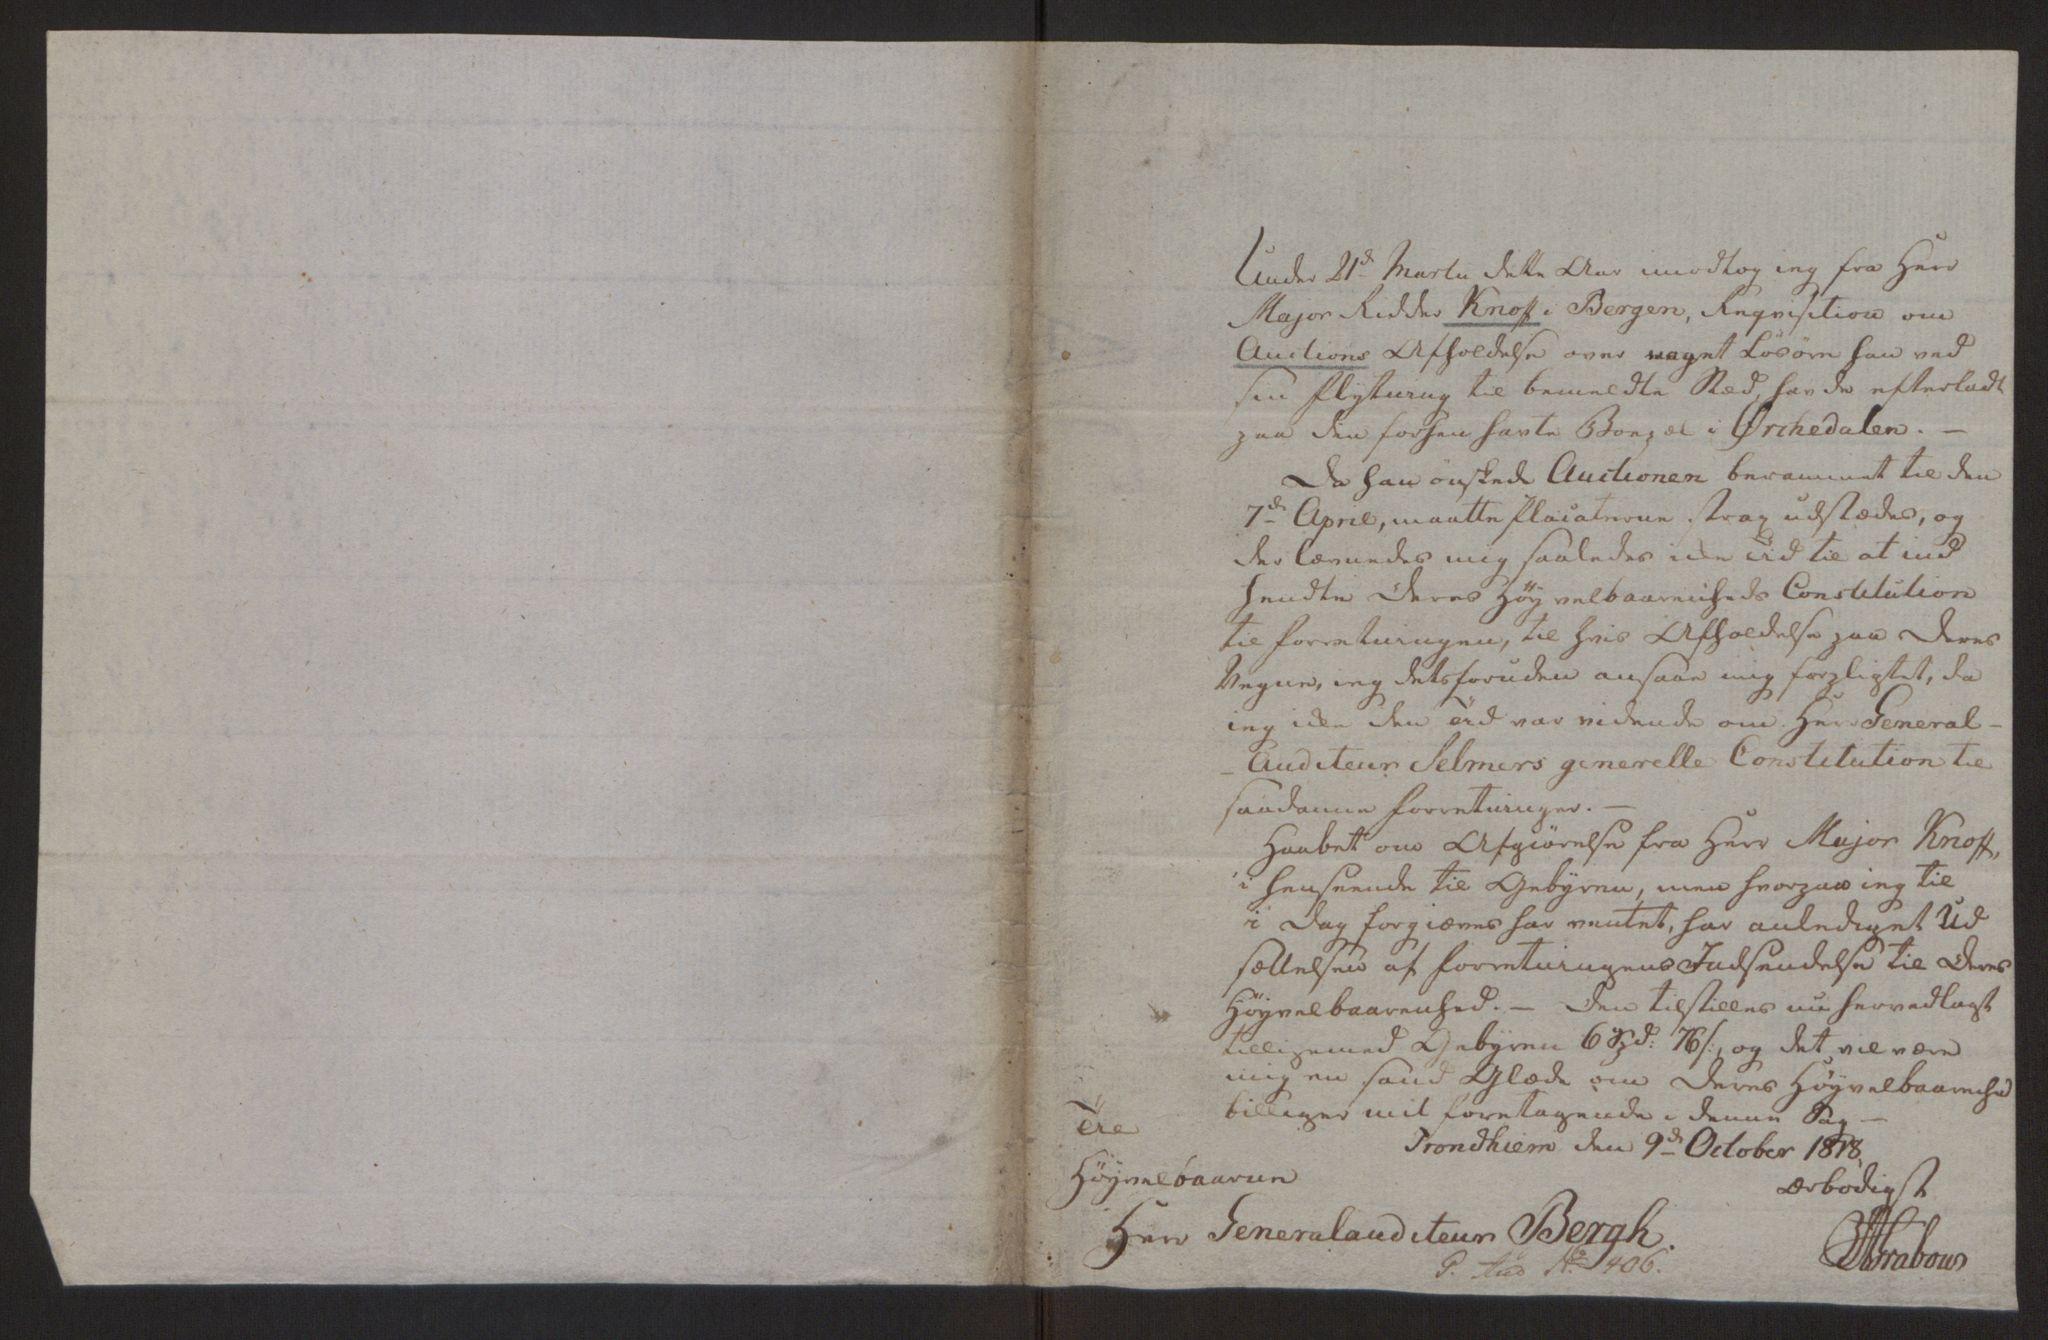 Under 21d Martii dette Aar modtog ieg fra Herr
Major Ridder Knoff i Bergen, Reqvisition om
Auctions Afholdelse over noget Løsöre han ved
sin Flytning til bemeldte Stæd, havde efterladt
paa den forhen havte Boepæl i Ørchedalen. —
Da han önskede Auctionen berammet til den
7de April, maatte Placaterne strax udstædes, og
der levnedes mig saaledes icke Tid til at ind
hendte Deres Höyvelbaarenheds Constitution
til Forretningen, til hvis Afholdelse paa Deres
Vegne, ieg detsforuden ansaae mig forpligtet, da
ieg icke den Tiid var vidende om Herr General-
-Auditeur Selmers generelle Constitution til
saadanne Forretninger. —
Haabet om Afgiörelse fra Herr Major Knoff,
i henseende til Gebyren, men hvorpaa ieg til
i Dag forgiæves har ventet, har anlediget Ud
sættelsen af Forretningens Indsendelse til Deres
Höyvelbaarenhed. — Den tilstilles nu hervedlagt
tilligemed Gebyren 6 Spd: 76 s:, og det vil være
mig en sand Glæde om Deres Höyvelbaarenhed
billiger mit Foretagende i denne Sag —
Trondhiem den 9de October 1818
ærbödigst
Grabow
Til
Höyvelbaarne
Herr Generalauditeur Bergh.
G. Aud No 406.